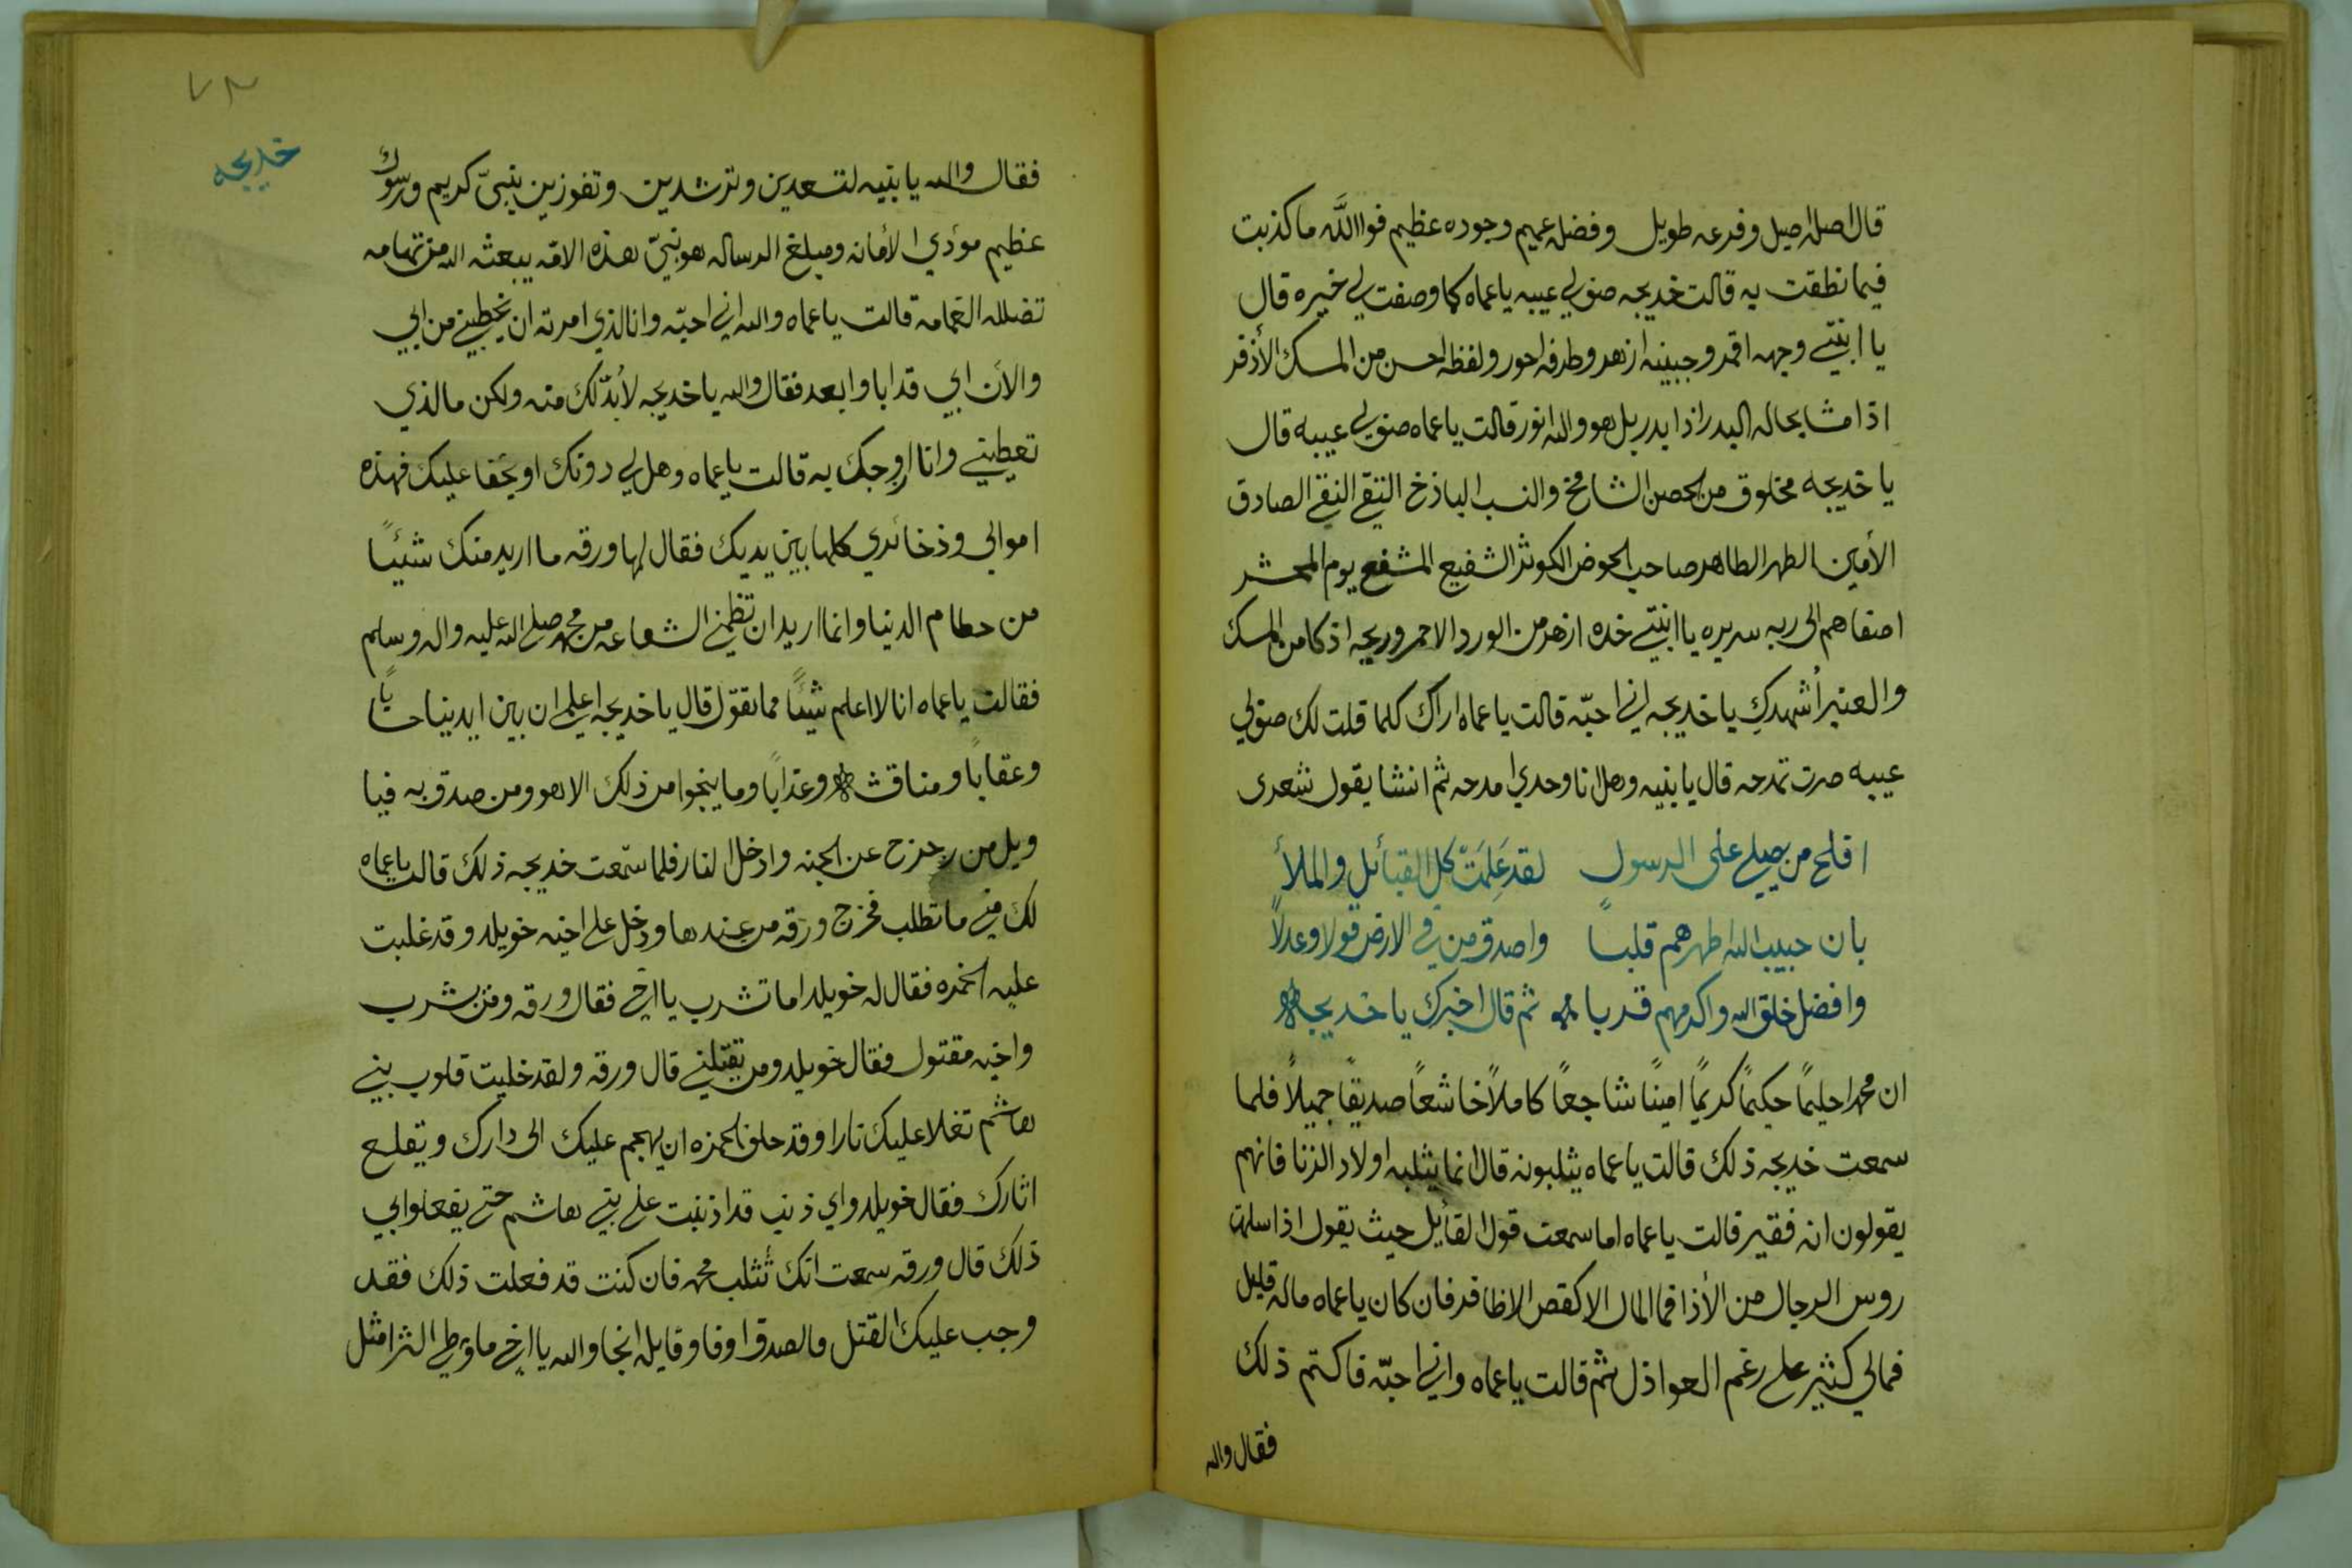 قال اصله اصيل وفرعه طويل وفضله عميم وجوده عظيم فوا الله ما كذبت
فيما نطقت به قالت خديجه صف لي عيبه يا عماه كما وصفت لي خيره قال
يا ابنتي وجهه اقمر وجبينه ازهر وطرفه احور ولفظه احسن من المسك الأذفر
اذا مشا بحاله البدر اذا بدر بل هو والله انور قالت يا عماه صف لي عيبه قال
يا خديجه مخلوق من الحصن الشامخ والنسب الباذخ التقي النقي الصادق
الأمين الطهر الطاهر صاحب الحوض الكوثر الشفيع المشفع يوم المحشر
اصفاهم الى ربه سريره يا ابنتي خده ازهر من الورد الاحمر وريحه اذكا من المسك
والعنبر أشهدكِ يا خديجه اني احبّه قالت يا عماه اراك كلما قلت لك صف لي
عيبه صرت تمدحه قال يا بنيه وهل انا وحدي امدحه ثم انشا يقول شعرى
افلح من يصلي على الرسول لقد عَلِمَتْ كل القبائل والملأ
بان حبيب الله اطهرهم قلباً واصدق من في الارض قولا وعدلاً
وافضل خلق الله واكرمهم قربا ثم قال اخبرك يا خديجه
ان محمد احليمًا حكيمًا كريمًا امينًا شاجعًا كاملاً خاشعًا صديقًا جميلاً فلما
سمعت خديجه ذلك قالت يا عماه يثلبونه قال انما يثلبه اولاد الزنا فانهم
يقولون انه فقير قالت يا عماه اما سمعت قول القائل حيث يقول اذا سلمت
روس الرجال من الأذا فما المال الا كقص الاظافر فان كان يا عماه ماله قليل
فمالي كثير على رغم العواذل ثم قالت يا عماه واني احبّه فاكتم ذلك
فقال والله
٧٣
خديجه
فقال والله يا بنيه لتسعدين وترشدين وتفوزين بنبيّ كريم ورسول
عظيم مؤدي الأمانه ومبلغ الرساله هو نبيّ هذه الامّه يبعثه الله من تهامه
تضلله الغمامه قالت يا عماه والله اني احبّه وانا الذي امرته ان يخطبني من ابي
والأن ابي قد ابا وابعد فقال والله يا خديجه لأبدّ لك منه ولكن ما الذي
تعطيني وانا ازوجك به قالت يا عماه وهل لي دونك او يخفا عليك فهذه
اموالي وذخائري كلها بين يديك فقال لها ورقه ما اريد منك شيئًا
من حطام الدنيا وانما اريد ان تظمني الشفاعه من محمد صلى الله عليه واله وسلم
فقالت يا عماه انا لا اعلم شيئًا مما تقول قال يا خديجه اعلمي ان بين ايدينا حساباً
وعقاباً ومناقشه وعذاباً وما ينجوا من ذلك الا هو ومن صدق به فيا
ويل من زحزح عن الجنه وادخل النار فلما سمعت خديجه ذلك قالت يا عماه
لك مني ما تطلب فخرج ورقه من عندها ودخل على اخيه خويلد وقد غلبت
عليه الخمره فقال له خويلد اما تشرب يا اخي فقال ورقه ومن يشرب
واخيه مقتول فقال خويلد ومن يقتلني قال ورقه ولقد خليت قلوب بني
هاشم تغلا عليك نارا وقد حلف الحمزه ان يهجم عليك الى دارك ويقلع
اثارك فقال خويلد واي ذنب قد اذنبت على بني هاشم حتى يفعلوا بي
ذلك قال ورقه سمعت انك تُثلب محمد فان كنت قد فعلت ذلك فقد
وجب عليك القتل والصدق اوفا وقايله انجا والله يا اخي ما وطي الثرا مثل